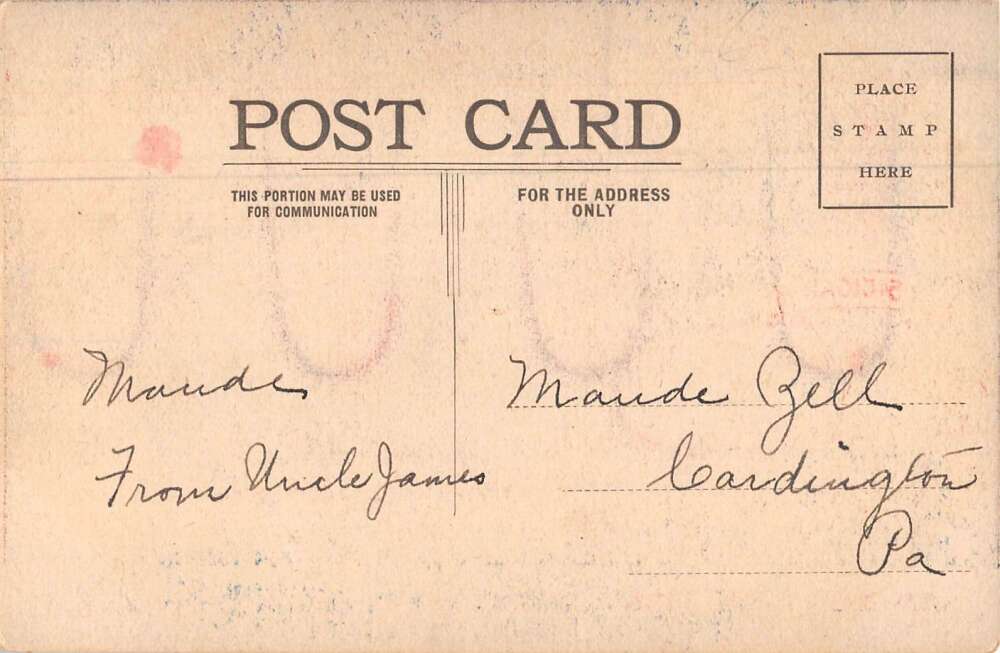 POST CARD
PLACE
STAMP
HERE
THIS PORTION MAY BE USED
FOR COMMUNICATION
FOR THE ADDRESS
ONLY
Maude
From Uncle James
Maude Zell
Cardington
Pa